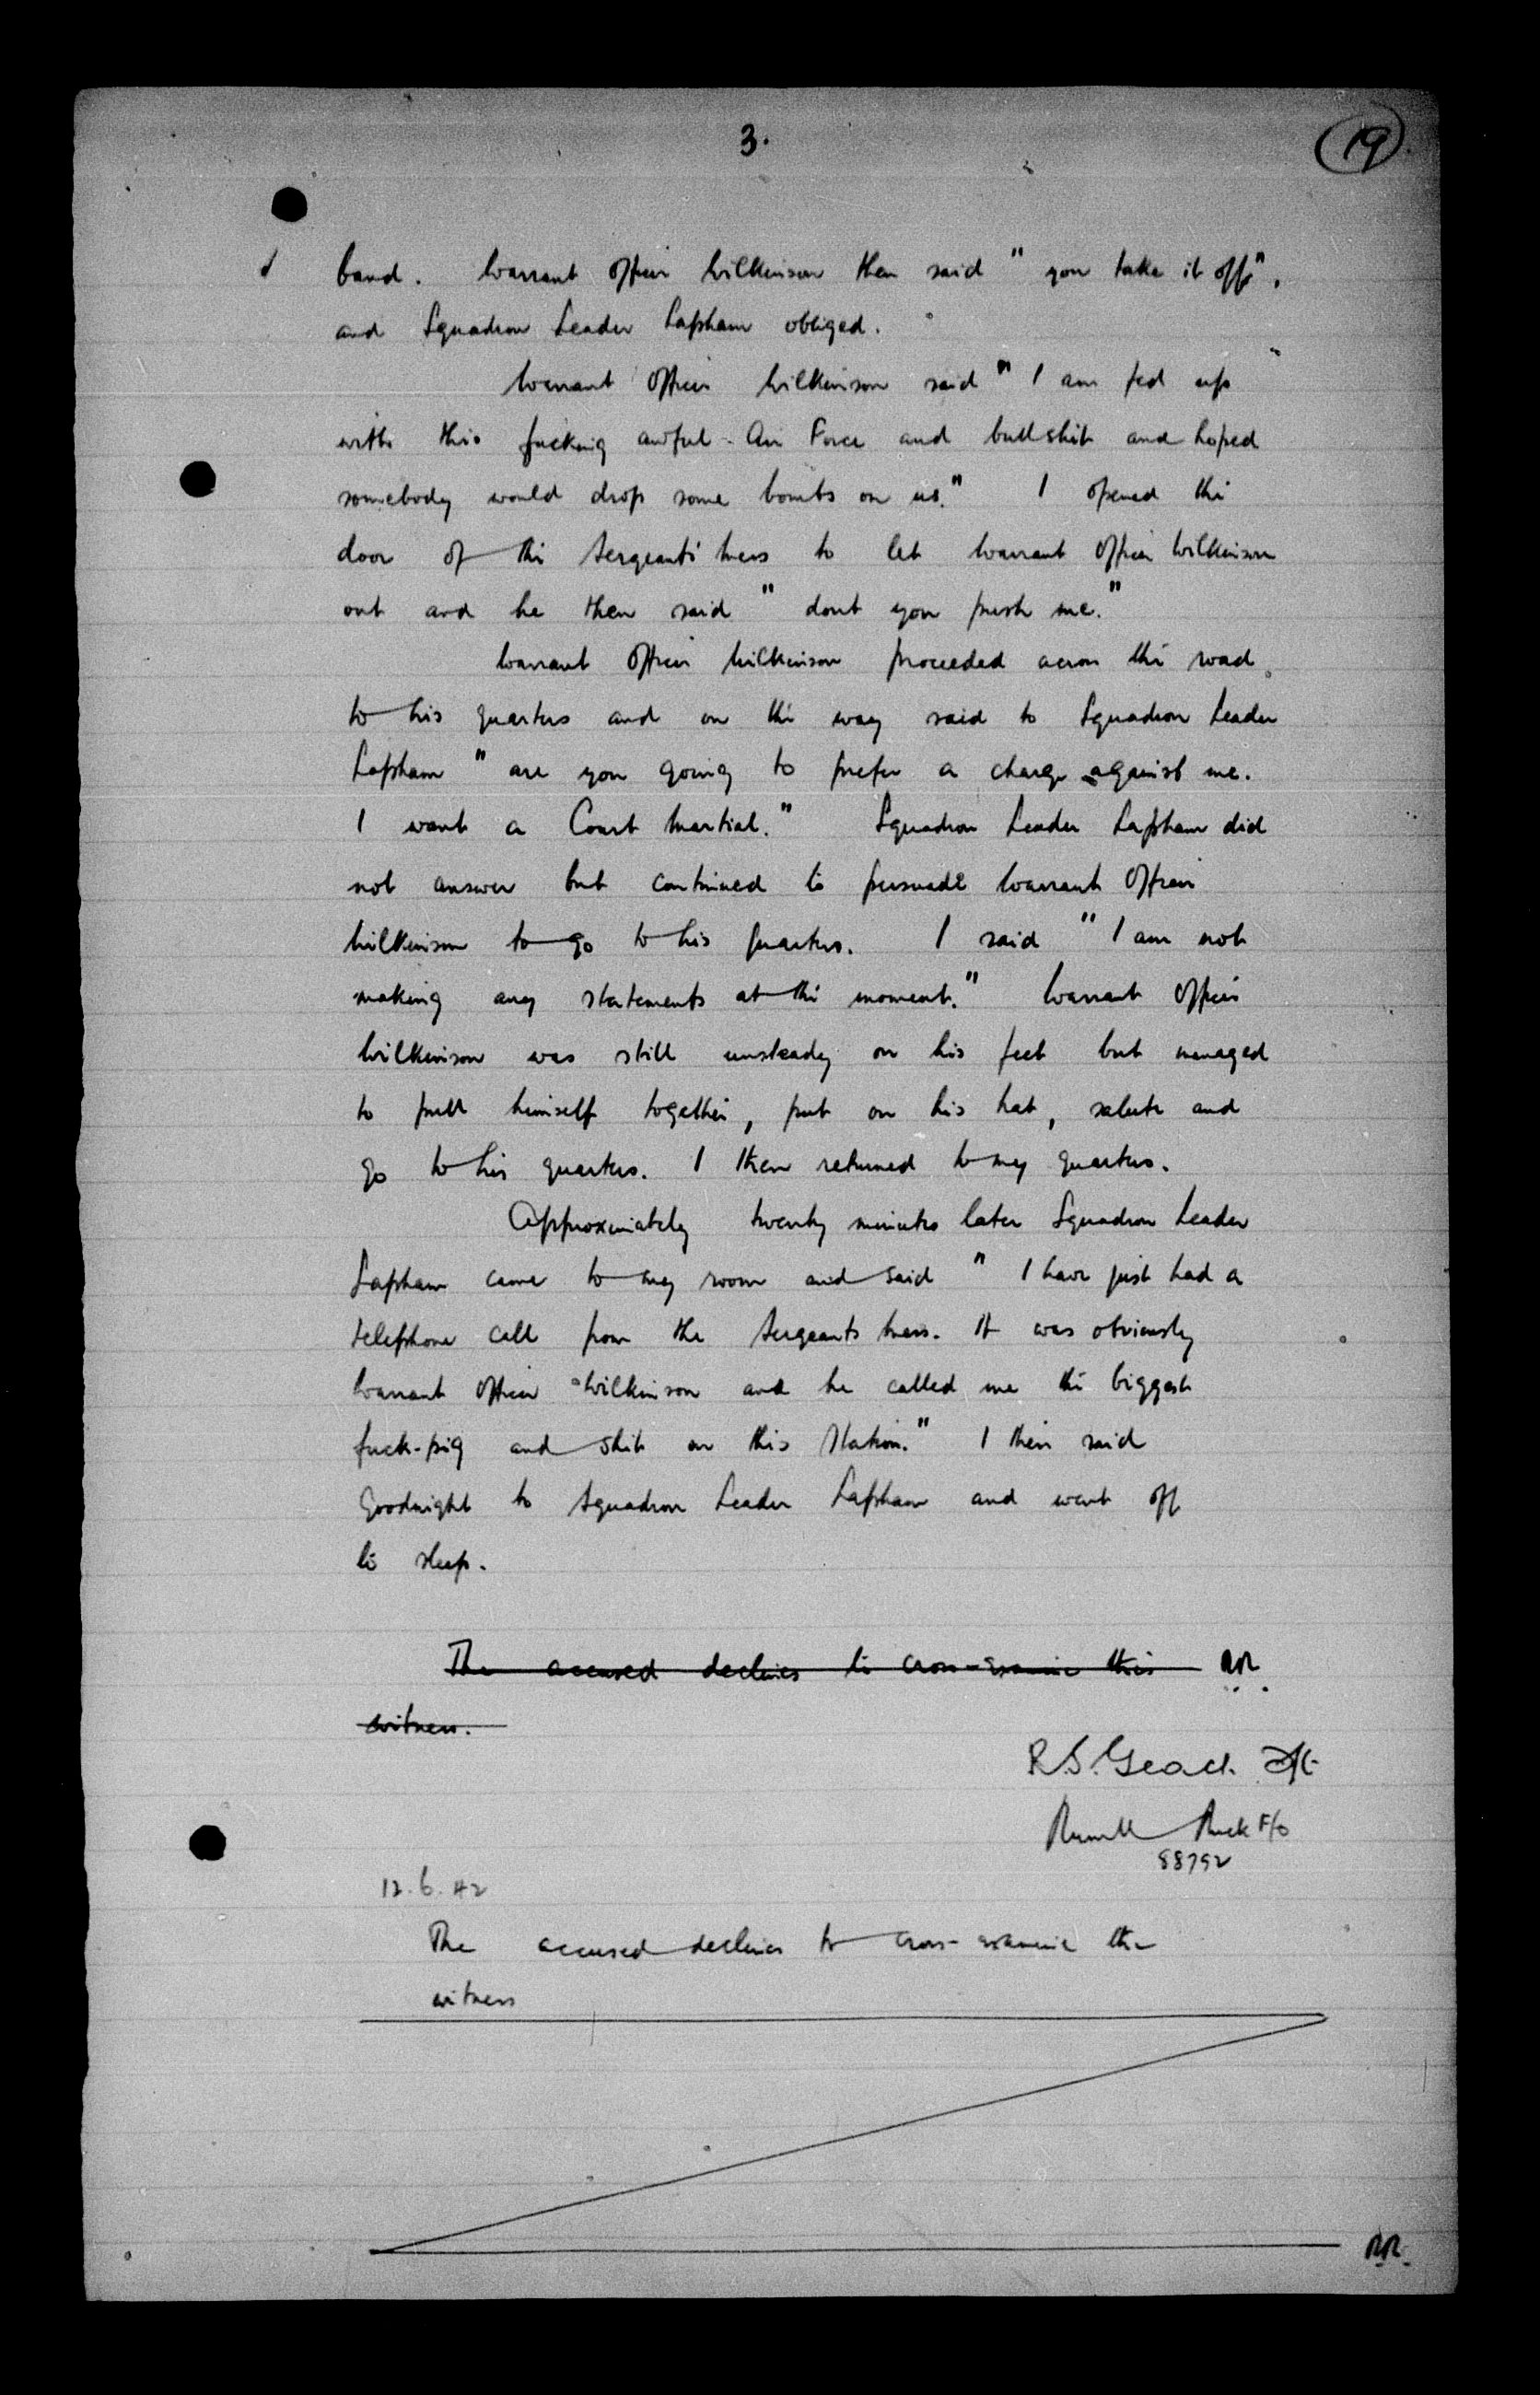 3.
19
band. Warrant Officer Wilkinson then said "you take it off",
and Squadron Leader Lapham obliged.
Warrant Officer Wilkinson said "I am fed up
with this fucking awful Air Force and bullshit and hoped
somebody would drop some bombs on us." I opened the
door of the Sergeants' Mess to let Warrant Officer Wilkinson
out and he then said "dont you push me."
Warrant Officer Wilkinson proceeded across the road
to his quarters and on the way said to Squadron Leader
Lapham "are you going to prefer a charge against me.
I want a Court Martial." Squadron Leader Lapham did
not answer but continued to persuade Warrant Officer
Wilkinson to go to his quarters. I said "I am not
making any statements at the moment." Warrant Officer
Wilkinson was still unsteady on his feet but managed
to pull himself together, put on his hat, salute and
go to his quarters. I then returned to my quarters.
Approximately twenty minutes later Squadron Leader
Lapham came to my room and said "I have just had a
telephone call from the Sergeants Mess. It was obviously
Warrant Officer Wilkinson and he called me the biggest
fuck-pig and shit on this Station." I then said
Goodnight to Squadron Leader Lapham and went off
to sleep.
The accused declines to cross-examine this RR.
witness.
R.S. Geach
F/O
88792
12.6.42
The accused declines to cross-examine the
witness
RR.